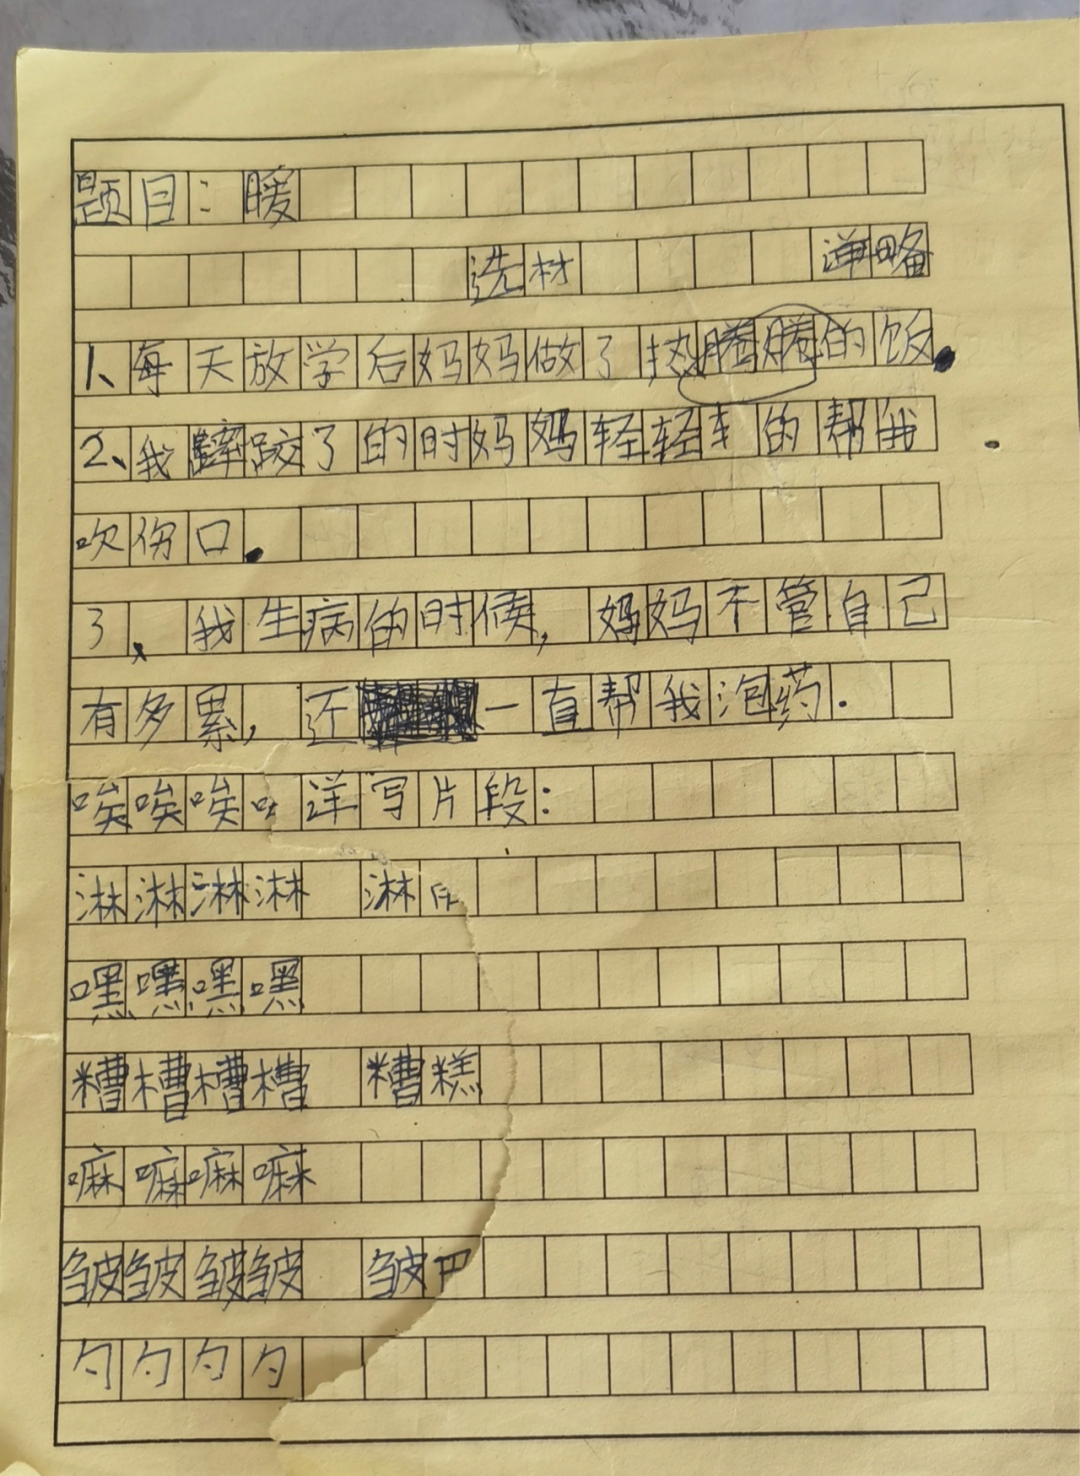 题目：暖
选材 详略
1、每天放学后妈妈做了热腾腾的饭。
2、我蹭跤了的时妈妈轻轻的帮我
吹伤口。
3、我生病的时候，妈妈不管自己
有多累，还一直帮我泡药.
唉唉唉 详写片段：
淋淋淋淋 淋
嘿嘿嘿嘿
糟槽槽槽 糟糕
嘛嘛嘛嘛
皱皱皱皱 皱巴
勺勺勺勺